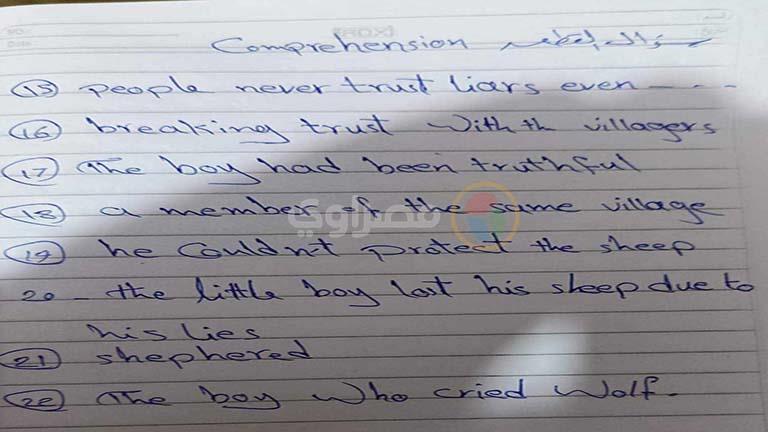 Comprehension سؤال القطعه
(15) people never trust liars even - - -
(16) breaking trust with th villagers
(17) The boy had been truthful
(18) a member of the same village
(19) he couldn't protect the sheep
20 - the little boy lost his sheep due to
his lies
(21) shephered
(22) The boy who cried wolf.
مصراوي